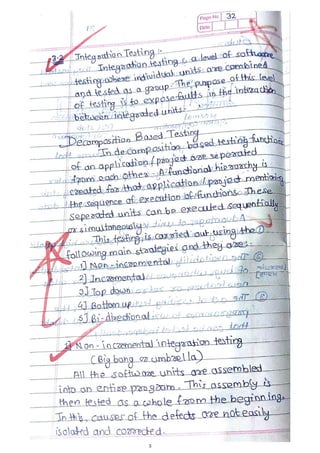 Page No 32
Date
2.2 Integration Testing :-
Integration testing is a level of software
testing where individual units are combined
and tested as a group. The purpose of this level
of testing is to expose faults in the interaction
between integrated units.
Decomposition Based Testing
In decomposition based testing functions
of an application / project are seperated
from each other. A functional hierarchy is
created for that application / project mentioning
the sequence of execution of functions. These
seperated units can be executed sequentially
or simultaneously.
This testing is carried out using the
following main strategies and they are:
1] Non-incremental
2] Incremental
3] Top down
4] Bottom up
5] Bi-directional
1] Non-incremental integration testing
(Big bang or umbrella)
All the software units are assembled
into an entire program. This assembly is
then tested as a whole from the beginning.
In this, causes of the defects are not easily
isolated and corrected.